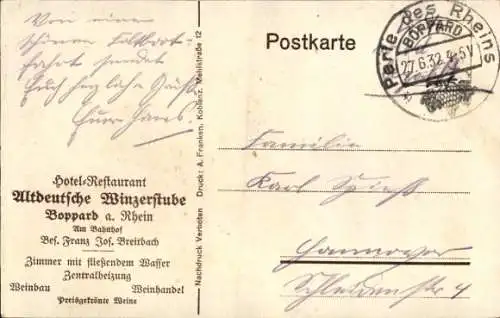 Von einer
schönen Faltboot-
fahrt sendet
Euch herzliche Grüße
Euer Hans.
Hotel-Restaurant
Altdeutsche Winzerstube
Boppard a. Rhein
Am Bahnhof
Bes. Franz Jos. Breitbach
Zimmer mit fließendem Wasser
Zentralheizung
Weinbau Weinhandel
Preisgekrönte Weine
Nachdruck Verboten Druck: A. Franken, Koblenz, Mehlstraße 12
Postkarte
Perle des Rheins
BOPPARD
27.6.32.
Familie
Karl
Hannover